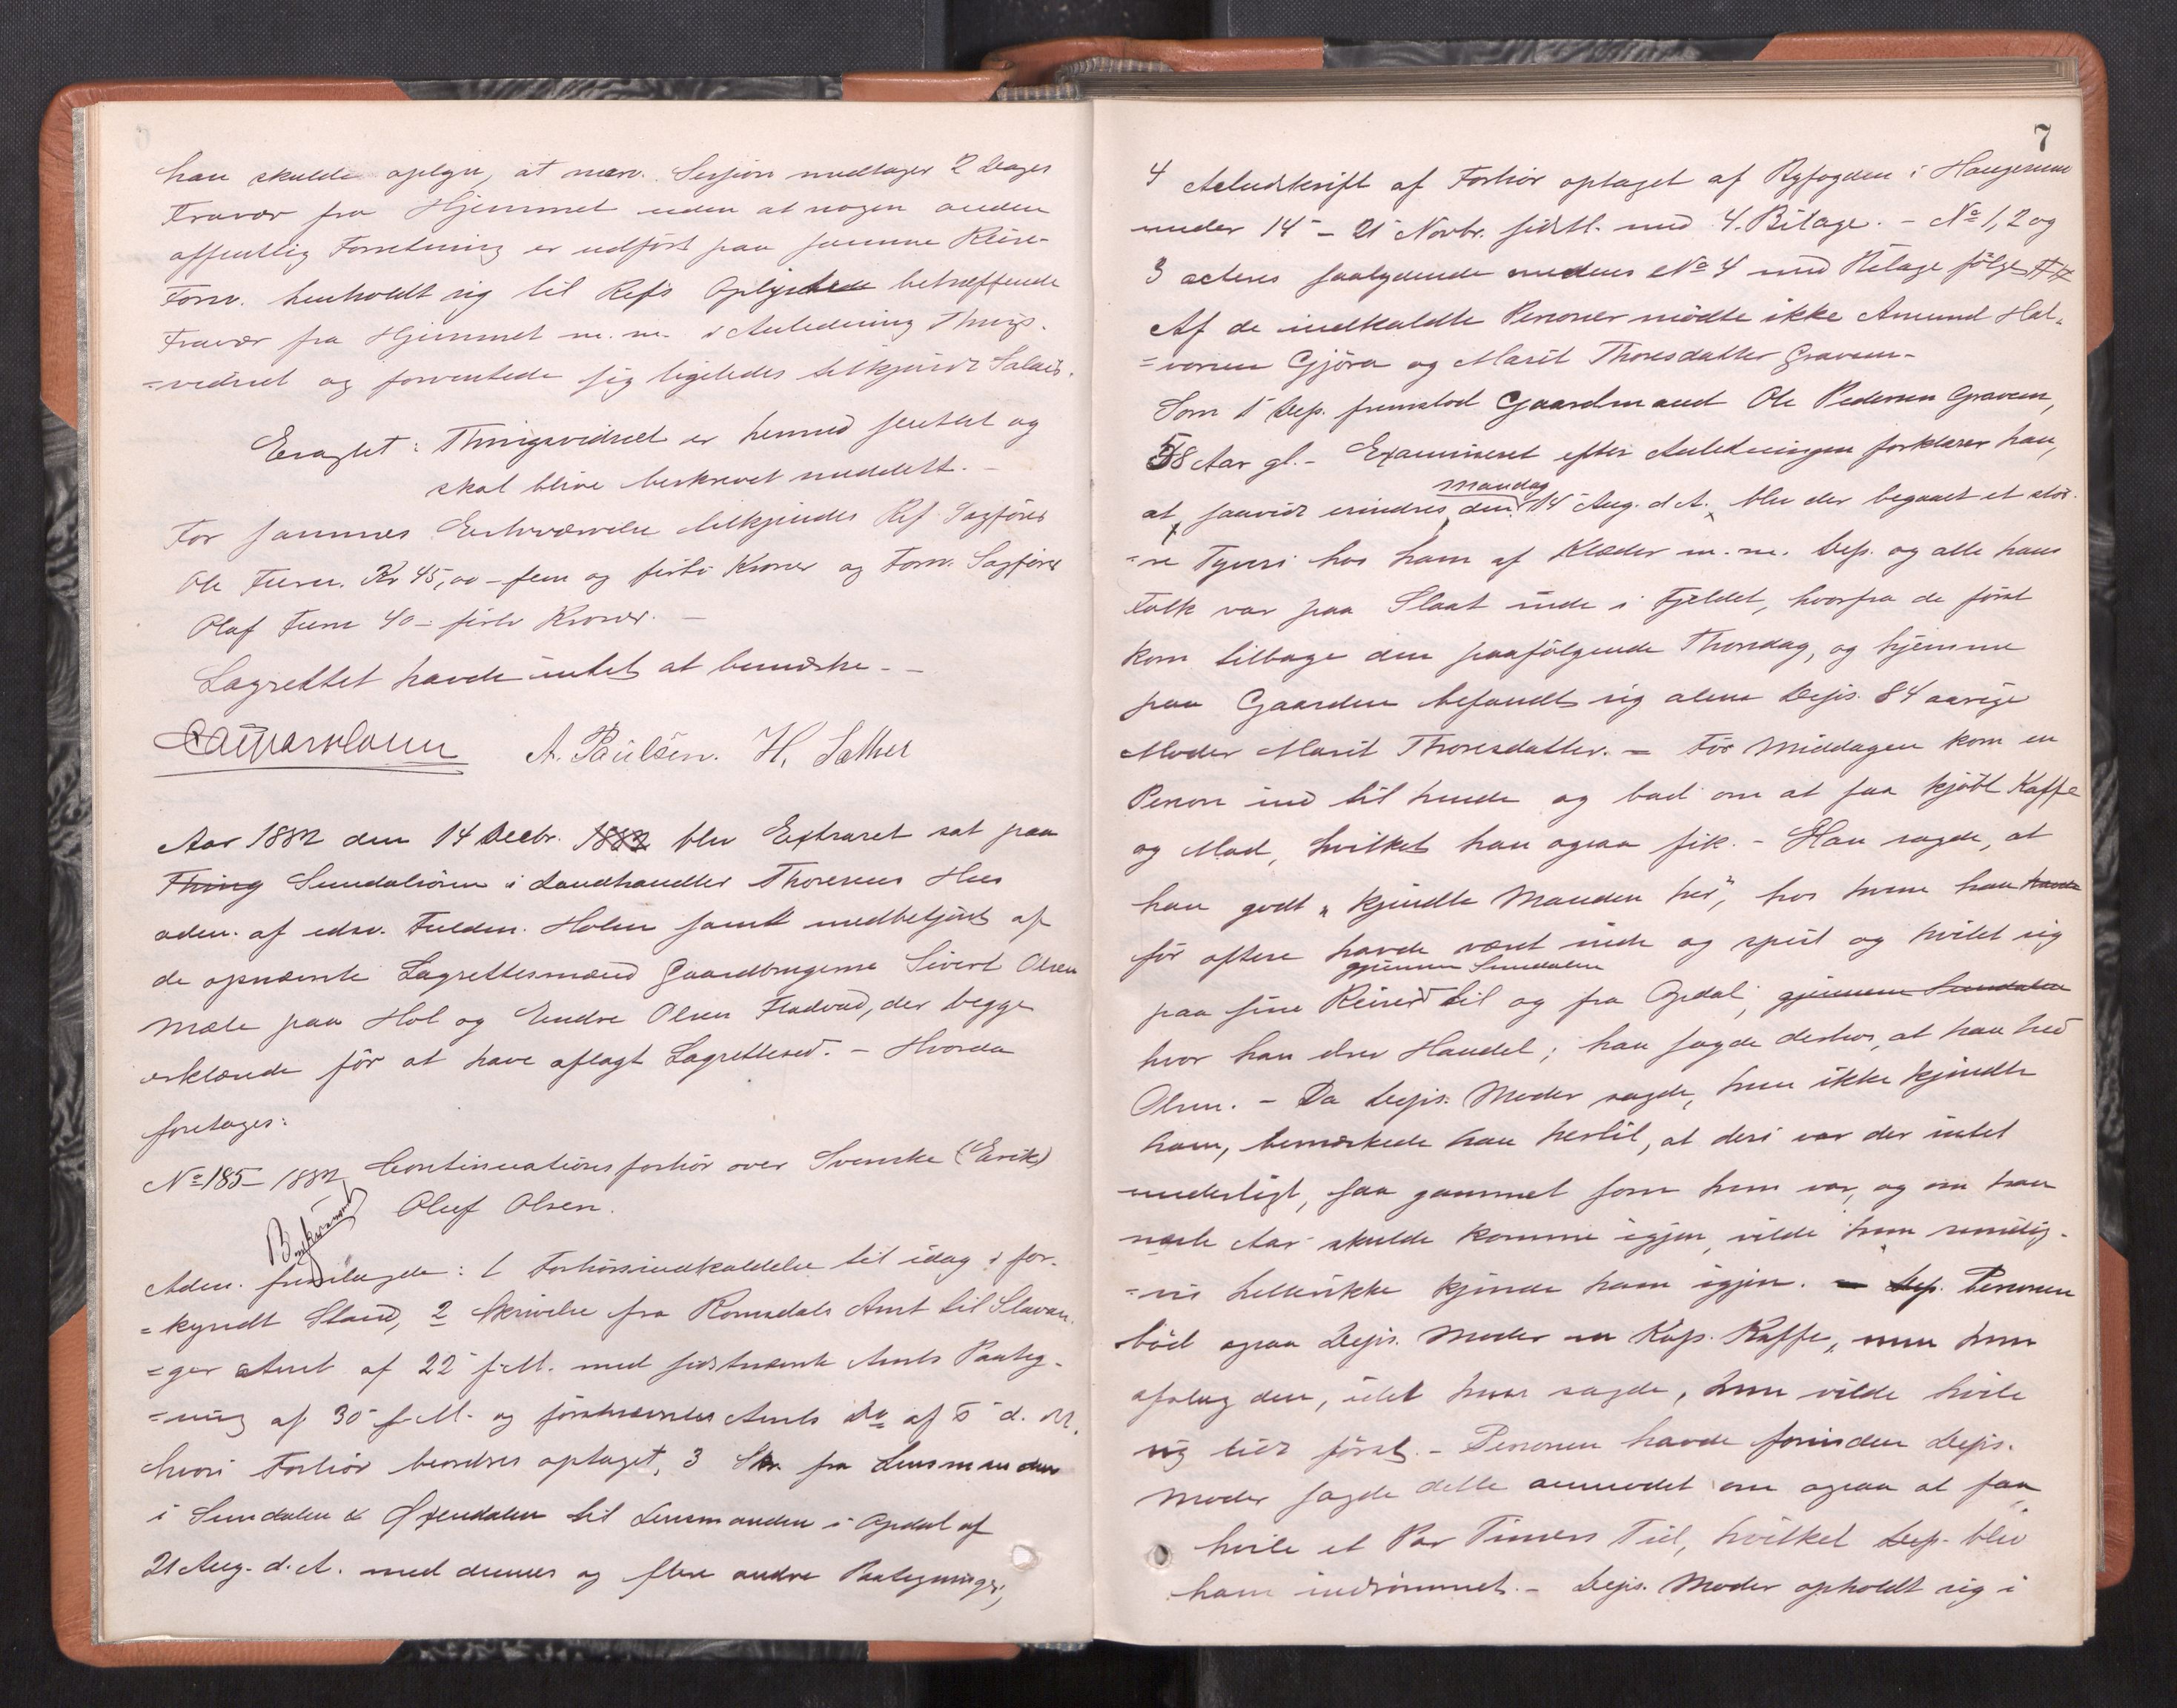 han skulde oplyse, at nærv. Session medtager 2 Dages
Fravær fra Hjemmet uden at nogen anden
offentlig Forretning er udført paa samme Reise.
Forsv. henholdt sig til Refs Oplysende betræffende
Fravær fra Hjemmet m. m. i Anledning Things-
=vidnet og forventede sig ligeledes tilkjendt Salair.
Eragtet: Thingsvidnet er hermed sluttet og
skal blive beskrevet meddelt. -
For sammes Erhværvelse tilkjendes Ref. Sagfører
Ole Furu. Kr 45,00 - fem og firti Kroner og Forsv. Sagfører
Olaf Furu 40 - firti Kroner. -
Lagrettet havde intet at bemærke. -
A. Paulsen. H. Sather
Aar 1882 den 14 Decbr. 1882 blev Extraret sat paa
Thing Sundalsøren i Landhandler Thoresens Hus
adm. af edsv. Fuldm. Holm samt medbetjent af
de opnævnte Lagrettesmænd Gaardbrugerne Sivert Olsen
Mæle paa Hol og Endre Olsen Fladvad, der begge
erklærede før at have aflagt Lagrettesed. - Hvorda
foretages:
No 185 - 1882 Continuationsforhør over Svenske (Erik)
Oluf Olsen.
Beskrevet
Adm. fremlagde: 1 Forhørsindkaldelse til idag i for-
=kyndt Stand, 2 Skrivelse fra Romsdals Amt til Stavan-
=ger Amt af 22 f. M. med sidstnævnte Amts Paateg-
=ning af 30 f. M. og førstnævntes Amts Do af 5 d. M.
hvori Forhør beordres optaget, 3 Skr. fra Lensmanden
i Sundalen & Øxendalen til Lensmanden i Opdal af
21 Aug. d. A. med dennes og flere andre Paategninger,
7
4 Acludskrift af Forhør optaget af Byfogden i Haugesund
under 14 - 21 Novbr. sidstl. med 4. Bilage. - No 1, 2 og
3 acteres saalydende medens No 4 med Bilage følger
Af de indkaldte Personer mødte ikke Amund Hal-
=vorsen Gjöra og Marit Thoresdatter Gravem -
Som 1 Dep. fremstod Gaardmand Ole Pedersen Gravem,
58 Aar gl. - Examineret efter Anledningen forklarer han,
mandag
at, saavidt erindres, den 14 Aug. d. A., blev der begaaet et stør-
=re Tyveri hos ham af Klæder m. m. Dep. og alle hans
Folk var paa Slaat inde i Fjeldet, hvorfra de først
kom tilbage den paafølgende Thorsdag, og hjemme
paa Gaarden befandt sig alene Dep's. 84 aarige
Moder Marit Thoresdatter. - Før Middagen kom en
Person ind til hende og bad om at faa kjøbt Kaffe
og Mad, hvilket han ogsaa fik. - Han sagde, at
han godt "kjendte Manden her", hos hvem han havde
før oftere havde været inde og spist og hvilet sig
gjennem Sundalen
paa sine Reiser til og fra Opdal, gjennem Sundalen
hvor han drev Handel; han sagde derhos, at han hed
Olsen. - Da Dep's. Moder sagde, hun ikke kjendte
ham, bemærkede han hertil, at deri var der intet
underligt, saa gammel som hun var, og om han
næste Aar skulde komme igjen, vilde hun rimelig-
=vis hellerikke kjende ham igjen. - Dep. Personen
bød ogsaa Dep's. Moder en Kop. Kaffe, men hun
afslog den, idet hun sagde, hun vilde hvile
sig lidt først. - Personen havde forinden Dep's.
Moder sagde dette anmodet om ogsaa at faa
hvile et Par Timers Tid, hvilket Dep. blev
ham indrømmet. - Dep's. Moder opholdt sig i